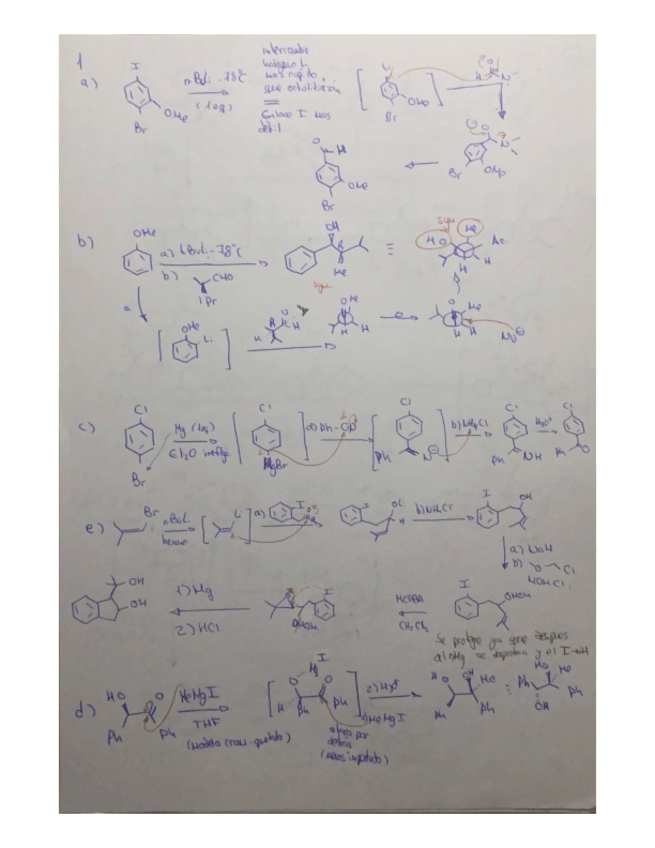 1
a)
I
OMe
Br
nBuLi -78ºC
(1eq)
intercambio
halógeno Li
más rápido
que ortolitiación
Enlace I más
débil.
Li
OMe
Br
Br
OMe
OMe
Br
b)
OMe
a) tBuLi -78ºC
b)
CHO
iPr
OH
Me
≡
syn
HO
Me
H
H
syn
a
OMe
Li
H
H
H
Me
H
H
Nu⊖
c)
Cl
Br
Mg (1eq)
Et2O
Cl
MgBr
a) Ph-CN
Cl
Ph
N⊖
b) NH4Cl
Cl
Ph
NH
H3O+
Cl
Ph
O
e)
Br
nBuLi
hexano
Li
a)
I
I
H
b) NH4Cl
I
OH
a) NaH
b)
O
Cl
MOMCl.
OH
OH
1) Mg
2) HCl
O
I
OMOM
MCPBA
CH2Cl2
I
OMOM
Se protege ya que después
d)
HO
O
Ph
Ph
MeMgI
THF
(Modelo Cram-quelato)
I
Mg
O
O
H
Ph
Ph
ataca por
detrás
(menos impedido)
2) H3O+
1) MeMgI
HO
OH
Me
Ph
Ph
HO
Me
Ph
Ph
OH